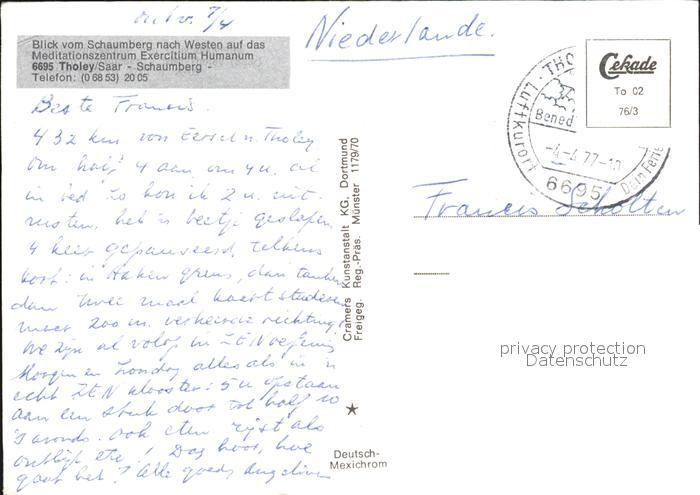 ontv. 7/4
Niederlande.
Blick vom Schaumberg nach Westen auf das
Meditationszentrum Exercitium Humanum
6695 Tholey/Saar - Schaumberg -
Telefon: (0 68 53) 20 05
Cekade
To 02
76/3
THO
Luftkurort
Bened
-4.-4.77-10
6695
Dein Ferie
Beste Francis.
432 km von Eersel n. Tholey
om half 4 aan, om 4 u. al
in bed. Zo kon ik 2 u. uit-
rusten, heb 'n beetje geslapen,
4 keer gepauseerd, telkens
kort: in Aken grens, dan tanken
dan twee maal kaart studeren
meer 200 m. verkeerde richting,
We zijn al volop in ZEN oefening
Morgen en Zondag alles als in 'n
echt ZEN klooster: 5 u opstaan
aan een stuk door tot half 10
's avonds. ook eten rijst als
ontbijt etc! Dag hoor, hoe
gaat het? Alle goeds
Francis Scholten
Cramers Kunstanstalt KG. Dortmund
Freigeg. Reg.-Präs. Münster 1179/70
Deutsch-
Mexichrom
privacy protection
Datenschutz